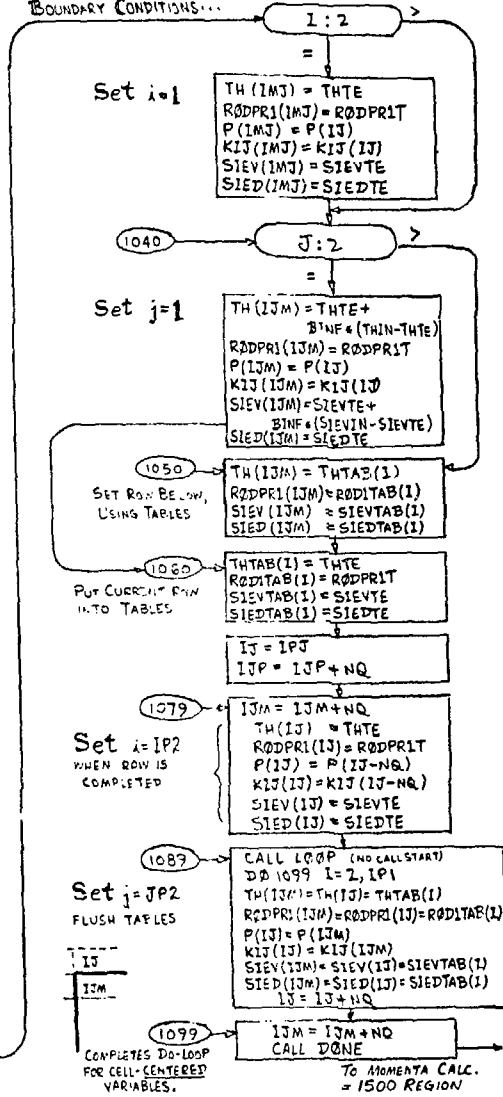 BOUNDARY CONDITIONS...
I:2
>
=
Set i=1
TH(IMJ) = THTE
RØDPR1(IMJ)=RØDPR1T
P(IMJ) = P(IJ)
KIJ(IMJ)=KIJ(IJ)
SIEV(IMJ)=SIEVTE
SIED(IMJ)=SIEDTE
1040
J:2
>
=
Set j=1
TH(IJM)=THTE+
BINF*(THIN-THTE)
RØDPR1(IJM)=RØDPR1T
P(IJM)=P(IJ)
KIJ(IJM)=KIJ(IJ)
SIEV(IJM)=SIEVTE+
BINF*(SIEVIN-SIEVTE)
SIED(IJM)=SIEDTE
1050
SET ROW BELOW,
USING TABLES
TH(IJM) = THTAB(I)
RØDPR1(IJM)=RØD1TAB(I)
SIEV(IJM) =SIEVTAB(I)
SIED(IJM) =SIEDTAB(I)
1060
PUT CURRENT ROW
INTO TABLES
THTAB(I)=THTE
RØD1TAB(I)=RØDPR1T
SIEVTAB(I)=SIEVTE
SIEDTAB(I)=SIEDTE
IJ=IPJ
IJP = IJP+NQ
1079
Set i=IP2
WHEN ROW IS
COMPLETED
IJM=IJM+NQ
TH(IJ) =THTE
RØDPR1(IJ)=RØDPR1T
P(IJ) = P(IJ-NQ)
KIJ(IJ)=KIJ(IJ-NQ)
SIEV(IJ)=SIEVTE
SIED(IJ)=SIEDTE
1089
Set j=JP2
FLUSH TABLES
CALL LØØP (NO CALL START)
DØ 1099 I=2,IP1
TH(IJM)=TH(IJ)=THTAB(I)
RØDPR1(IJM)=RØDPR1(IJ)=RØD1TAB(I)
P(IJ)=P(IJM)
KIJ(IJ)=KIJ(IJM)
SIEV(IJM)=SIEV(IJ)=SIEVTAB(I)
SIED(IJM)=SIED(IJ)=SIEDTAB(I)
IJ=IJ+NQ
IJ
IJM
1099
COMPLETES DO-LOOP
FOR CELL-CENTERED
VARIABLES.
IJM=IJM+NQ
CALL DØNE
TO MOMENTA CALC.
=1500 REGION